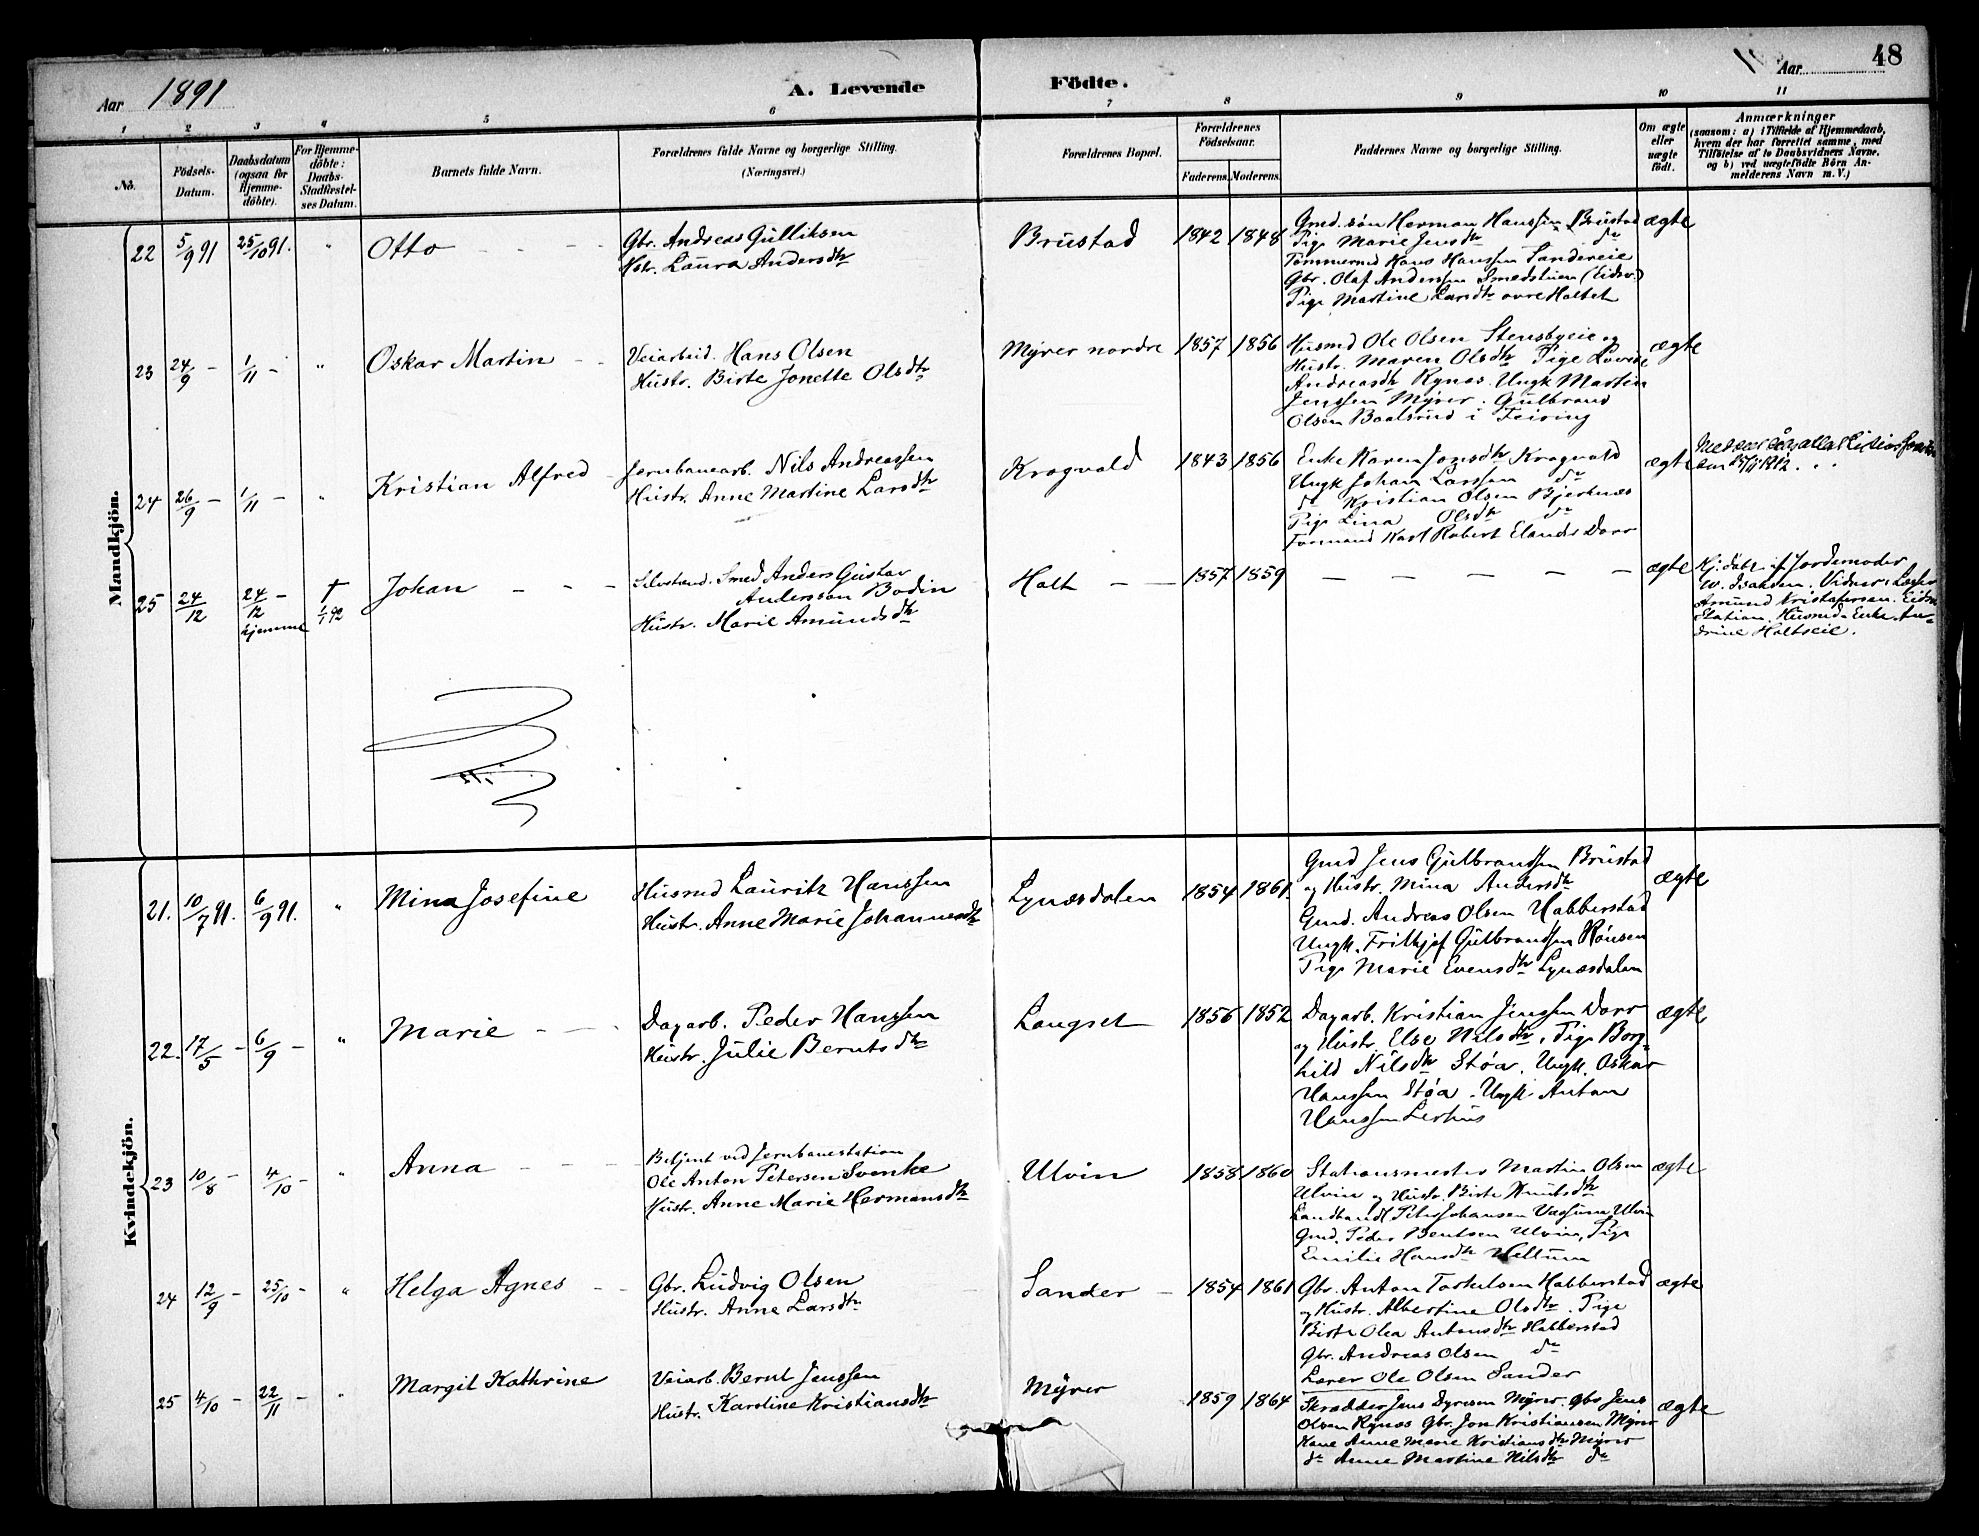 Aar 1891
A. Levende Födte.
Aar 48
1 2 3 4 5 6 7 8 9 10 11
No.
Födsels-Datum.
Daabsdatum (ogsaa for Hjemme-döbte).
For Hjemme-döbte: Daabs-Stadfæstel-ses Datum.
Barnets fulde Navn.
Forældrenes fulde Navne og borgerlige Stilling.
(Næringsvei.)
Forældrenes Bopæl.
Forældrenes Födselsaar.
Faderens. Moderens.
Faddernes Navne og borgerlige Stilling.
Om ægte eller uægte födt.
Anmærkninger
(saasom: a) i Tilfælde af Hjemmedaab,
hvem der har forrettet samme, med
Tilföielse af to Daabsvidners Navne,
og b) ved uægtefödte Börn An-
melderens Navn m. V.)
Mandkjön.
22 5/9 91 25/10 91. " Otto
Gbr. Andreas Gulliksen
Hstr. Laura Andersdtr
Brustad 1842 1848
Gmd. sön Herman Hanssen Brustad
Pige Marie Jensdtr do
Tömmermd Hans Hanssen Sandereie
Gbr. Olaf Anderssen Smedstuen (Eidsv.)
Pige Martine Larsdtr övre Holtet
ægte
23 24/9 – 1/11 – " Oskar Martin
Veiarbeid. Hans Olsen
Hustr. Birte Jonette Olsdtr
Myrer nordre 1857 1856
Husmd Ole Olsen Stensbyeie og
Hustr. Maren Olsdtr Pige Lovise
Andreasdtr Rynas. Ungk Martin
Jenssen Myrer. Gulbrand
Olsen Baalsrud i Feiring
ægte
24 26/9 – 1/11 – " Kristian Alfred
Jernbanearb. Nils Andreassen
Hustr. Anne Martine Larsdtr
Krogvald 1843 1856
Enke Karen Jonsdtr Krogvald
Ungk Johan Larssen do
do Kristian Olsen Bjerknes
Pige Lina Olsdtr do
Formand Karl Robert Elander Dorr
ægte
25 24/12 24/12 – hjemme † 1/1 92 Johan
Selvstænd. Smed Anders Gustav
Andersson Bodin
Hustr. Marie Amundsdtr
Holt 1857 1859 – – – – –
ægte
Hj. döbt af Jordemoder
W. Isaksen. Vidner:
Amund Kristofersen. Eidsv.
Station. Husmd. Enke An-
drine Holtseie.
Kvindekjön.
21. 10/7 91. 6/9 91. " Mina Josefine
Husmd Lauritz Hanssen
Hustr. Anne Marie Johannesdtr
Lynæsdalen 1854 1861.
Gmd Jens Gulbranssen Brustad
og Hustr. Mina Andersdtr
Gmd. Andreas Olsen Habberstad
Ungk. Frithjof Gulbranssen Hönsen
Pige Marie Evensdtr Lynæsdalen
ægte
22. 17/5 – 6/9 – " Marie
Dagarb. Peder Hanssen
Hustr. Julie Berntsdtr
Langset 1856 1852
Dagarb. Kristian Jenssen Dorr
og Hustr. Else Nilsdtr, Pige Borg-
hild Nilsdtr Støa. Ungk. Oskar
Hanssen Støa. Ungk. Anton
Hanssen Lerhus
ægte
23 10/8 – 4/10 – " Anna
Betjent ved Jernbanestation
Ole Anton Petersen Svenke
Hustr. Anne Marie Hermansdtr
Ulvin 1858 1860
Stationsmester Martin Olsen
Ulvin og Hustr. Birte Knutsdtr
Landhandl. Peter Johansen Ulvin
Gmd. Peder Bentsen Ulvin, Pige
Emilie Hansdtr
ægte
24 12/9 – 25/10 – " Helga Agnes
Gbr. Ludvig Olsen
Hustr. Anne Larsdtr
Sander 1854 1861
Gbr. Anton Torkelsen Habberstad
og Hustr. Albertine Olsdtr. Pige
Birte Olea Antonsdtr Habberstad
Gbr. Andreas Olsen do
Lærer Ole Olsen Sander
ægte
25 4/10 – 22/11 – " Margit Kathrine
Veiarb. Bernt Jenssen
Hustr. Karoline Kristiansdtr
Myrer 1859 1864
Skrædder Jens Dyresen Myrer. Gbr Jens
Olsen Rynas Gbr. Jon Kristiansen Myrer
Kone Anne Marie Kristiansdtr Myrer
do Anne Martine Nilsdtr do
ægte